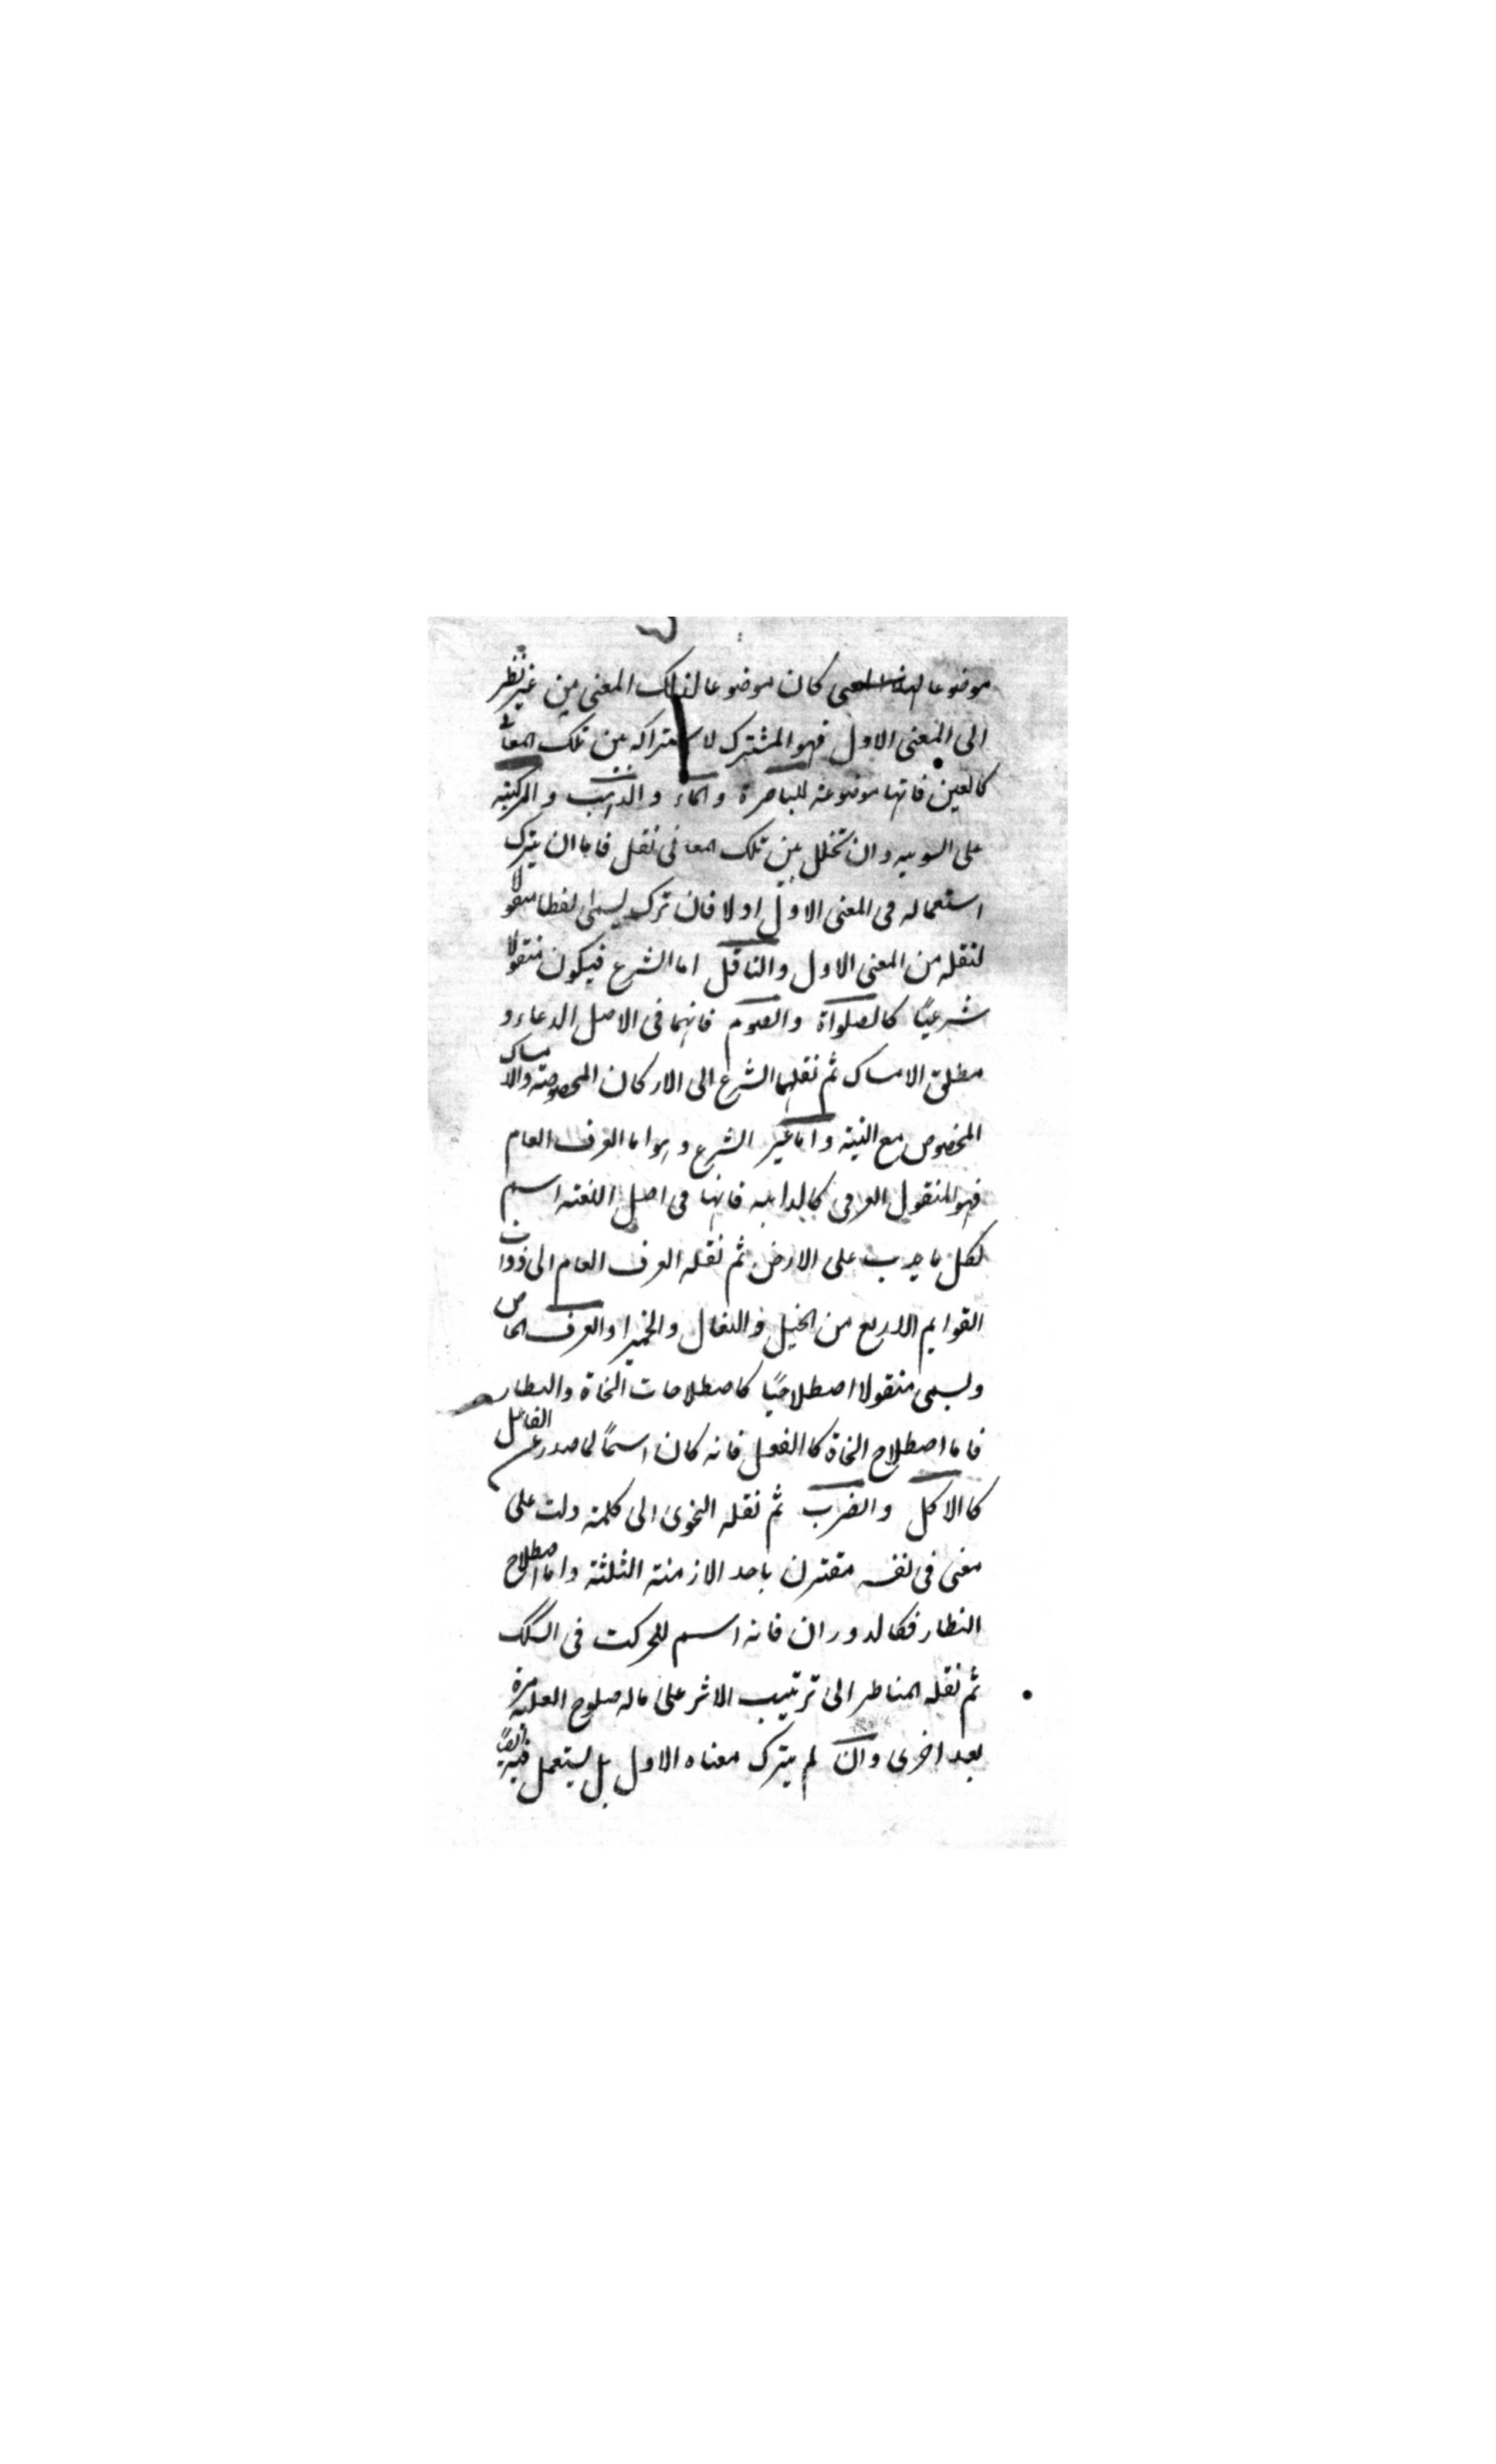 موضوعا لهذا المعنى كان موضوعا لذلك المعنى من غير نظر
الى المعنى الاول فهو المشترك لاشتراكه بين تلك المعانى
كالعين فانها موضوعة للباصرة والماء والذهب والركبة
على السويه وان تخلل بين تلك المعانى نقل فاما ان يترك
استعماله فى المعنى الاول او لا فان ترك يسمى لفظا منقولا
لنقله من المعنى الاول والناقل اما الشرع فيكون منقولا
شرعيًا كالصلواة والصوم فانهما فى الاصل الدعاء و
مطلق الامساك ثم نقلهما الشرع الى الاركان المخصوصة والامساك
المخصوص مع النية واما غير الشرع وهو اما العرف العام
فهو المنقول العرفى كالدابه فانها فى اصل اللغة اسم
لكل ما يدب على الارض ثم نقله العرف العام الى ذوات
القوايم الاربع من الخيل والبغال والحمير او العرف الخاص
ويسمى منقولا اصطلاحيًا كاصطلاحات النحاة والنظار
فاما اصطلاح النحاة كالفعل فانه كان اسمًا لما صدر عن الفاعل
كالاكل والضرب ثم نقله النحوى الى كلمة دلت على
معنى فى نفسه مقترن باحد الازمنة الثلثة واما اصطلاح
النظار فكالدوران فانه اسم للحركت فى السكك
ثم نقله المناظر الى ترتيب الاثر على ماله صلوح العلية مرة
بعد اخرى وان لم يترك معناه الاول بل يستعمل فيه ايضًا